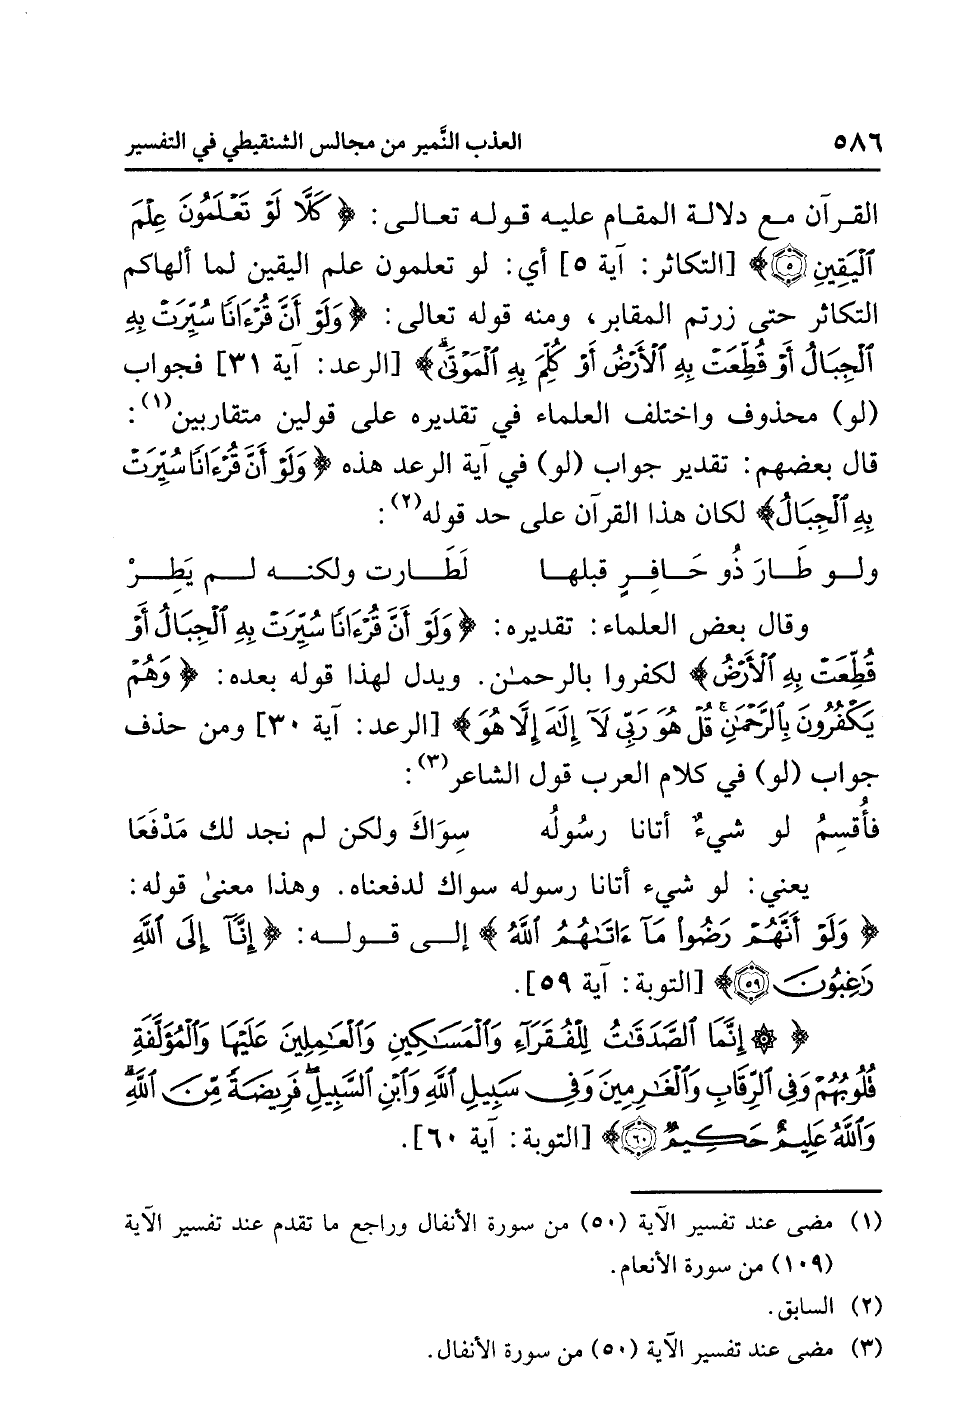 ٥٨٦ العذب النَّمير من مجالس الشنقيطي في التفسير
القرآن مع دلالة المقام عليه قوله تعالى: ﴿كَلَّا لَوْ تَعْلَمُونَ عِلْمَ
ٱلْيَقِينِ ٥﴾ [التكاثر: آية ٥] أي: لو تعلمون علم اليقين لما ألهاكم
التكاثر حتى زرتم المقابر، ومنه قوله تعالى: ﴿وَلَوْ أَنَّ قُرْءَانًا سُيِّرَتْ بِهِ
ٱلْجِبَالُ أَوْ قُطِّعَتْ بِهِ ٱلْأَرْضُ أَوْ كُلِّمَ بِهِ ٱلْمَوْتَىٰۗ﴾ [الرعد: آية ٣١] فجواب
(لو) محذوف واختلف العلماء في تقديره على قولين متقاربين(١):
قال بعضهم: تقدير جواب (لو) في آية الرعد هذه ﴿وَلَوْ أَنَّ قُرْءَانًا سُيِّرَتْ
بِهِ ٱلْجِبَالُ﴾ لكان هذا القرآن على حد قوله(٢):
ولو طَارَ ذُو حَافِرٍ قبلها لَطَارت ولكنه لم يَطِرْ
وقال بعض العلماء: تقديره: ﴿وَلَوْ أَنَّ قُرْءَانًا سُيِّرَتْ بِهِ ٱلْجِبَالُ أَوْ
قُطِّعَتْ بِهِ ٱلْأَرْضُ﴾ لكفروا بالرحمٰن. ويدل لهذا قوله بعده: ﴿وَهُمْ
يَكْفُرُونَ بِٱلرَّحْمَٰنِۚ قُلْ هُوَ رَبِّى لَآ إِلَٰهَ إِلَّا هُوَ﴾ [الرعد: آية ٣٠] ومن حذف
جواب (لو) في كلام العرب قول الشاعر(٣):
فأُقسِمُ لو شيءٌ أتانا رسُولُه سِوَاكَ ولكن لم نجد لك مَدْفَعَا
يعني: لو شيء أتانا رسوله سواك لدفعناه. وهذا معنىٰ قوله:
﴿وَلَوْ أَنَّهُمْ رَضُوا۟ مَآ ءَاتَىٰهُمُ ٱللَّهُ﴾ إلى قوله: ﴿إِنَّآ إِلَى ٱللَّهِ
رَٰغِبُونَ ٥٩﴾ [التوبة: آية ٥٩].
﴿۞ إِنَّمَا ٱلصَّدَقَٰتُ لِلْفُقَرَآءِ وَٱلْمَسَٰكِينِ وَٱلْعَٰمِلِينَ عَلَيْهَا وَٱلْمُؤَلَّفَةِ
قُلُوبُهُمْ وَفِى ٱلرِّقَابِ وَٱلْغَٰرِمِينَ وَفِى سَبِيلِ ٱللَّهِ وَٱبْنِ ٱلسَّبِيلِۖ فَرِيضَةً مِّنَ ٱللَّهِۗ
وَٱللَّهُ عَلِيمٌ حَكِيمٌ ٦٠﴾ [التوبة: آية ٦٠].
(١) مضى عند تفسير الآية (٥٠) من سورة الأنفال وراجع ما تقدم عند تفسير الآية
(١٠٩) من سورة الأنعام.
(٢) السابق.
(٣) مضى عند تفسير الآية (٥٠) من سورة الأنفال.